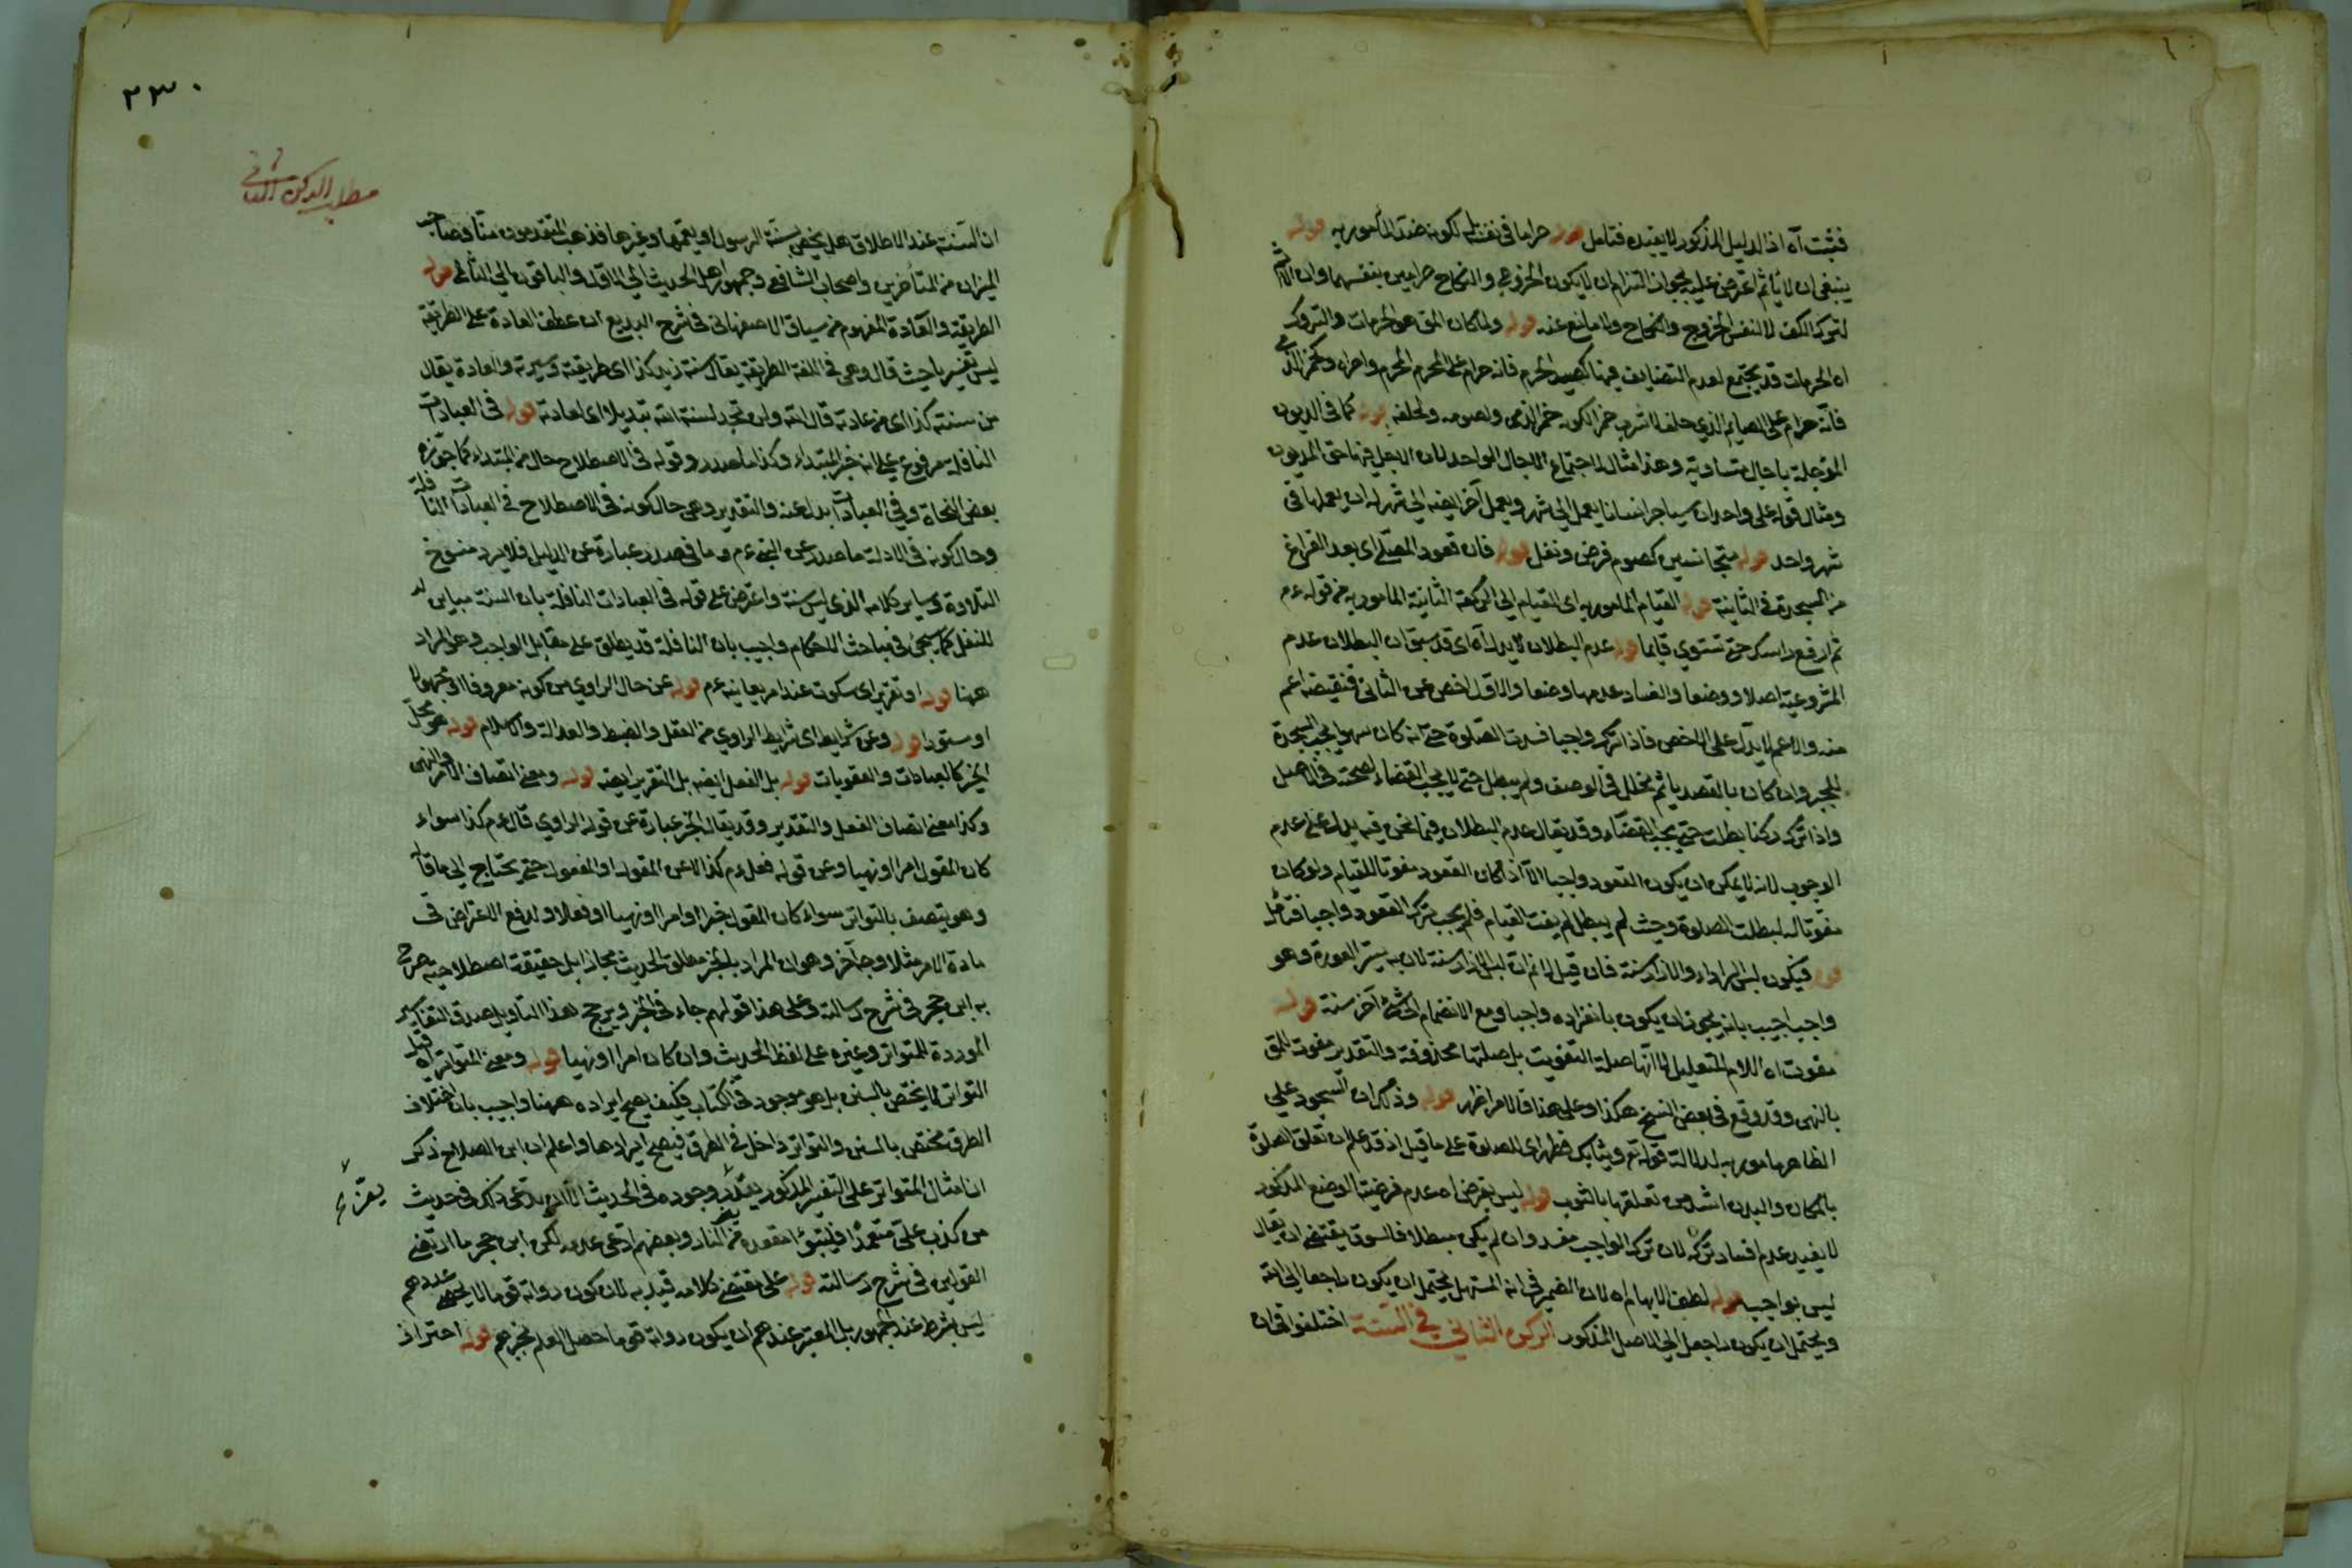 فثبت آه اذ الدليل المذكور لا يفيده فتامل قوله حراما في نفسه لكونه ضد المأمور به قوله
ينبغي ان لا يأثم اعترض عليه بجواز التزام ان لا يكون الخروج والنكاح حرامين بنفسهما وان الاثم
لترك الكف لا لنفس الخروج والنكاح ولا مانع عنه قوله ولما كان المق هو الحرمات والتروك
اه الحرمات قد يجتمع لعدم التضايف فيها كصيد الحرم فانه حرام على المحرم للحرم واحرامه وكخمر الذمي
فانه حرام على الصايم الذي حلف لا يشرب خمرا لكونه خمر الذمي ولصومه ولحلفه قوله كما في الديون
المؤجلة باجال متساوية وهذا مثال لاجتماع الاجال الواحد لان الاجل فيها حق المديون
ومثال قوله على واحد ان سيتاجر انسانا يعمل الى شهر ويعمل آخر ايضه الى شهر له ان يعملها في
شهر واحد قوله متجانسين كصوم فرض ونفل قوله فان قعود المصلي اى بعد الفراغ
من السجدة في الثانية قوله القيام المامور به اى القيام الى الركعة الثانية المامور به من قوله عم
ثم ارفع راسك حتى تستوي قايما قوله عدم البطلان لا يدل آه اى قد سبق ان البطلان عدم
المشروعية اصلا ووضعا والفساد عدمها وضعا والاول اخص من الثاني فنقيضه اعم
منه والاعم لا يدل على الاخص فاذا ترك واجبا فسدت الصلوة حتى انه كان سهوا يجب السجدة
للجبر وان كان بالقصد ياثم لخلل في الوصف ولم يبطل حتى لا يجب القضاء لصحته في الاصل
واذا ترك ركنا بطلت حتى يجب القضاء وقد يقال عدم البطلان فيما نحن فيه يدل على عدم
الوجوب لانه لا يمكن ان يكون القعود واجبا الا اذا كان القعود مفوتا للقيام ولو كان
مفوتا له لبطلت الصلوة وحيث لم يبطل لم يفت القيام فلم يجب ترك القعود واجبا فتأمل
قوله فيكون لبس الرداء والازار سنة فان قيل لا نم ان لبس الازار سنة لان به يستر العورة وهو
واجب اجيب بانه يجوز ان يكون بانفراده واجبا ومع الانضمام الى شئ آخر سنة قوله
مفوت اه اللام للتعليل لا انها صلة التفويت بل صلتها محذوفة والتقدير مفوت للمق
بالنهى وقد وقع في بعض النسخ هكذا وعلى هذا فالامر اظهر قوله وذكر ان السجود على
الطاهر مامور به لدلالة قوله تع وثيابك فطهر اى للصلوة على ما قيل اذ قد علم ان تعلق الصلوة
بالمكان والبدن اشد من تعلقها بالثوب قوله ليس بفرض اه عدم فرضية الوضع المذكور
لا يفيد عدم افساد تركه لان ترك الواجب مفسد وان لم يكن مبطلا فالسوق يقتضى ان يقال
ليس بواجب قوله لطف الايهام اه لان الضمير في انه المستهل يحتمل ان يكون راجعا الى الله
ويحتمل ان يكون راجعا الى الاصل المذكور الركن الثاني في السنة اختلفوا في ان
٢٣٠
مطلب الركن الثاني
ان السنة عند الاطلاق هل يختص بسنة الرسول او يعمها وغيرها فذهب المتقدمون منا وصاحب
الميزان من المتأخرين واصحاب الشافعي وجمهور اهل الحديث الى الاول والباقون الى الثاني قوله
الطريقة والعادة المفهوم من سياق الاصفهاني في شرح البديع ان عطف العادة على الطريقة
ليس تفسيريا حيث قال وهي في اللغة الطريقة يقال سنة زيد كذا اى طريقته وسيرته والعادة يقال
من سنته كذا اى من عادته قال الله ولن تجد لسنة الله تبديلا اى لعادته قوله في العبادات
النافلة مرفوع على انه خبر المبتداء وكذا ما صدر وقوله في الاصطلاح حال من المبتداء كما جوزه
بعض النحاة وفي العبادات بدل عنه والتقدير وهي حال كونه في الاصطلاح في العبادات النافلة
وحال كونه في الادلة ما صدر عن النبي عم وما في صدر عبارة عن الدليل فلا يرد منسوخ
التلاوة وساير كلامه الذي ليس سنة واعترض على قوله في العبادات النافلة بان السنة مباين له
للنفل كما سيجئ في مباحث الاحكام واجيب بان النافلة قد يطلق على مقابل الواجب وهو المراد
ههنا قوله او تقرير اى سكوت عند امر يعاينه عم قوله عن حال الراوي من كونه معروفا او مجهولا
او مستورا قوله وعن شرايط اى شرايط الراوي من العقل والضبط والعدالة والاسلام قوله هو محل
الخبر كالعبادات والعقوبات قوله بل الفعل ايضه بل التقرير ايضه قوله ومعنى اتصاف الامر والنهى
وكذا معنى اتصاف الفعل والتقدير وقد يقال الخبر عبارة عن قول الراوي قال عم كذا سواء
كان المقول امرا او نهيا وعن قوله فعل عم كذا لا عن المقول او المفعول حتى يحتاج الى ما قال
وهو يتصف بالتواتر سواء كان المقول خبرا او امرا او نهيا او فعلا ولدفع الاعتراض في
مادة الامر مثلا وجه آخر وهو ان المراد بالخبر مطلق الحديث مجازا بل حقيقة اصطلاحية صرح
به ابن حجر في شرح رسالته وعلى هذا قولهم جاء في الخبر ويرجح هذا التاويل صدق التفاسير
الموردة للمتواتر وغيره على لفظ الحديث وان كان امرا او نهيا قوله ومعنى المتواتر آه قيل
التواتر لا يختص بالسنن بل هو موجود في الكتاب فكيف يصح ايراده ههنا واجيب بان اختلاف
الطرق مختص بالسنن والتواتر داخل في الطرق فيصح ايرادها واعلم ان ابن الصلاح ذكر
ان مثال المتواتر على التفسير المذكور يعز وجوده في الحديث الا ان يدعى ذلك في حديث
يعز
من كذب على متعمدا فليتبوأ مقعده من النار وبعضهم ادعى عدمه لكن ابن حجر ما ارتضى
القولين في شرح رسالته قوله على مقتضى كلامه قيد به لان كون رواته قوما لا يحصى عددهم
ليس بشرط عند الجمهور بل المعتبر عندهم ان يكون رواته قوما حصل العلم بخبرهم قوله احتراز